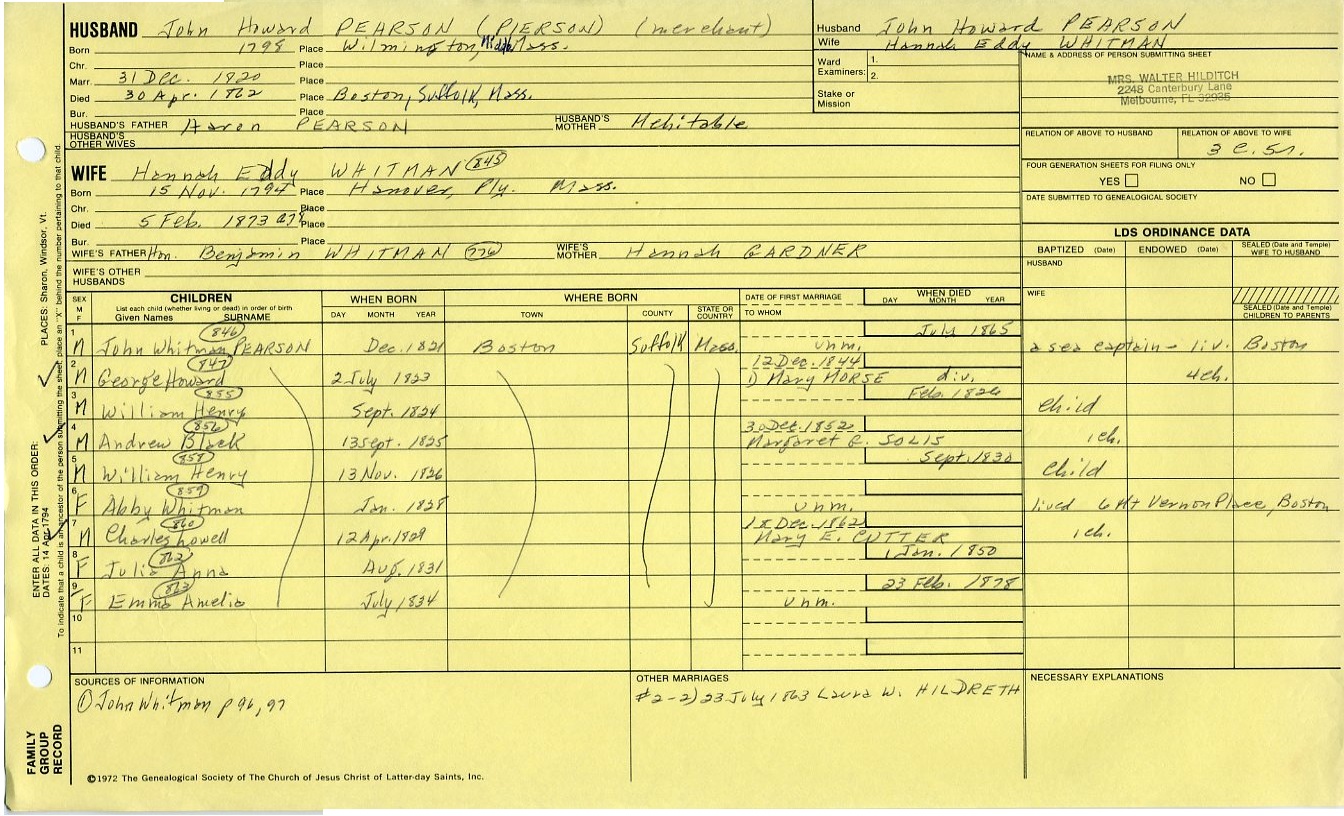 HUSBAND John Howard PEARSON (PIERSON) (merchant)
Born 1798 Place Wilmington, Middx Mass.
Chr. Place
Marr. 31 Dec. 1820 Place
Died 30 Apr. 1862 Place Boston, Suffolk, Mass.
Bur. Place
HUSBAND'S FATHER Aaron PEARSON HUSBAND'S MOTHER Mehitable
HUSBAND'S OTHER WIVES
WIFE Hannah Eddy WHITMAN 845
Born 15 Nov. 1794 Place Hanover, Ply. Mass.
Chr. Place
Died 5 Feb. 1873 a78 Place
Bur. Place
WIFE'S FATHER Hon. Benjamin WHITMAN 776 WIFE'S MOTHER Hannah GARDNER
WIFE'S OTHER HUSBANDS
Husband John Howard PEARSON
Wife Hannah Eddy WHITMAN
Ward Examiners: 1.
2.
Stake or Mission
NAME & ADDRESS OF PERSON SUBMITTING SHEET
MRS. WALTER HILDITCH
2248 Canterbury Lane
Melbourne, FL 32935
RELATION OF ABOVE TO HUSBAND RELATION OF ABOVE TO WIFE
3 C. 5r.
FOUR GENERATION SHEETS FOR FILING ONLY
YES NO
DATE SUBMITTED TO GENEALOGICAL SOCIETY
LDS ORDINANCE DATA
BAPTIZED (Date) ENDOWED (Date) SEALED (Date and Temple) WIFE TO HUSBAND
HUSBAND
WIFE
SEALED (Date and Temple) CHILDREN TO PARENTS
SEX M F CHILDREN List each child (whether living or dead) in order of birth Given Names SURNAME WHEN BORN DAY MONTH YEAR WHERE BORN TOWN COUNTY STATE OR COUNTRY DATE OF FIRST MARRIAGE TO WHOM WHEN DIED DAY MONTH YEAR
846 July 1865
1 M John Whitman PEARSON Dec. 1821 Boston Suffolk Mass. unm. a sea captain - liv. Boston
847 12 Dec. 1844
2 M George Howard 2 July 1823 1) Mary MORSE div. 4 ch.
855 Feb. 1826
3 M William Henry Sept. 1824 Child
856 30 Dec. 1852
4 M Andrew Black 13 Sept. 1825 Margaret E. SOLIS 1 ch.
858 Sept. 1830
5 M William Henry 13 Nov. 1826 Child
859
6 F Abby Whitman Jan. 1828 unm. lived 6 Mt Vernon Place, Boston
860 18 Dec. 1862
7 M Charles Lowell 12 Apr. 1829 Mary E. CUTTER 1 ch.
862 1 Jan. 1850
8 F Julia Anna Aug. 1831
863 23 Feb. 1878
9 F Emma Amelia July 1834 unm.
10
11
SOURCES OF INFORMATION
① John Whitman p 96, 97
OTHER MARRIAGES
#2-2) 23 July 1863 Laura W. HILDRETH
NECESSARY EXPLANATIONS
©1972 The Genealogical Society of The Church of Jesus Christ of Latter-day Saints, Inc.
FAMILY GROUP RECORD
ENTER ALL DATA IN THIS ORDER:
DATES: 14 Apr 1794 PLACES: Sharon, Windsor, Vt.
To indicate that a child is an ancestor of the person submitting the sheet, place an "X" behind the number pertaining to that child.